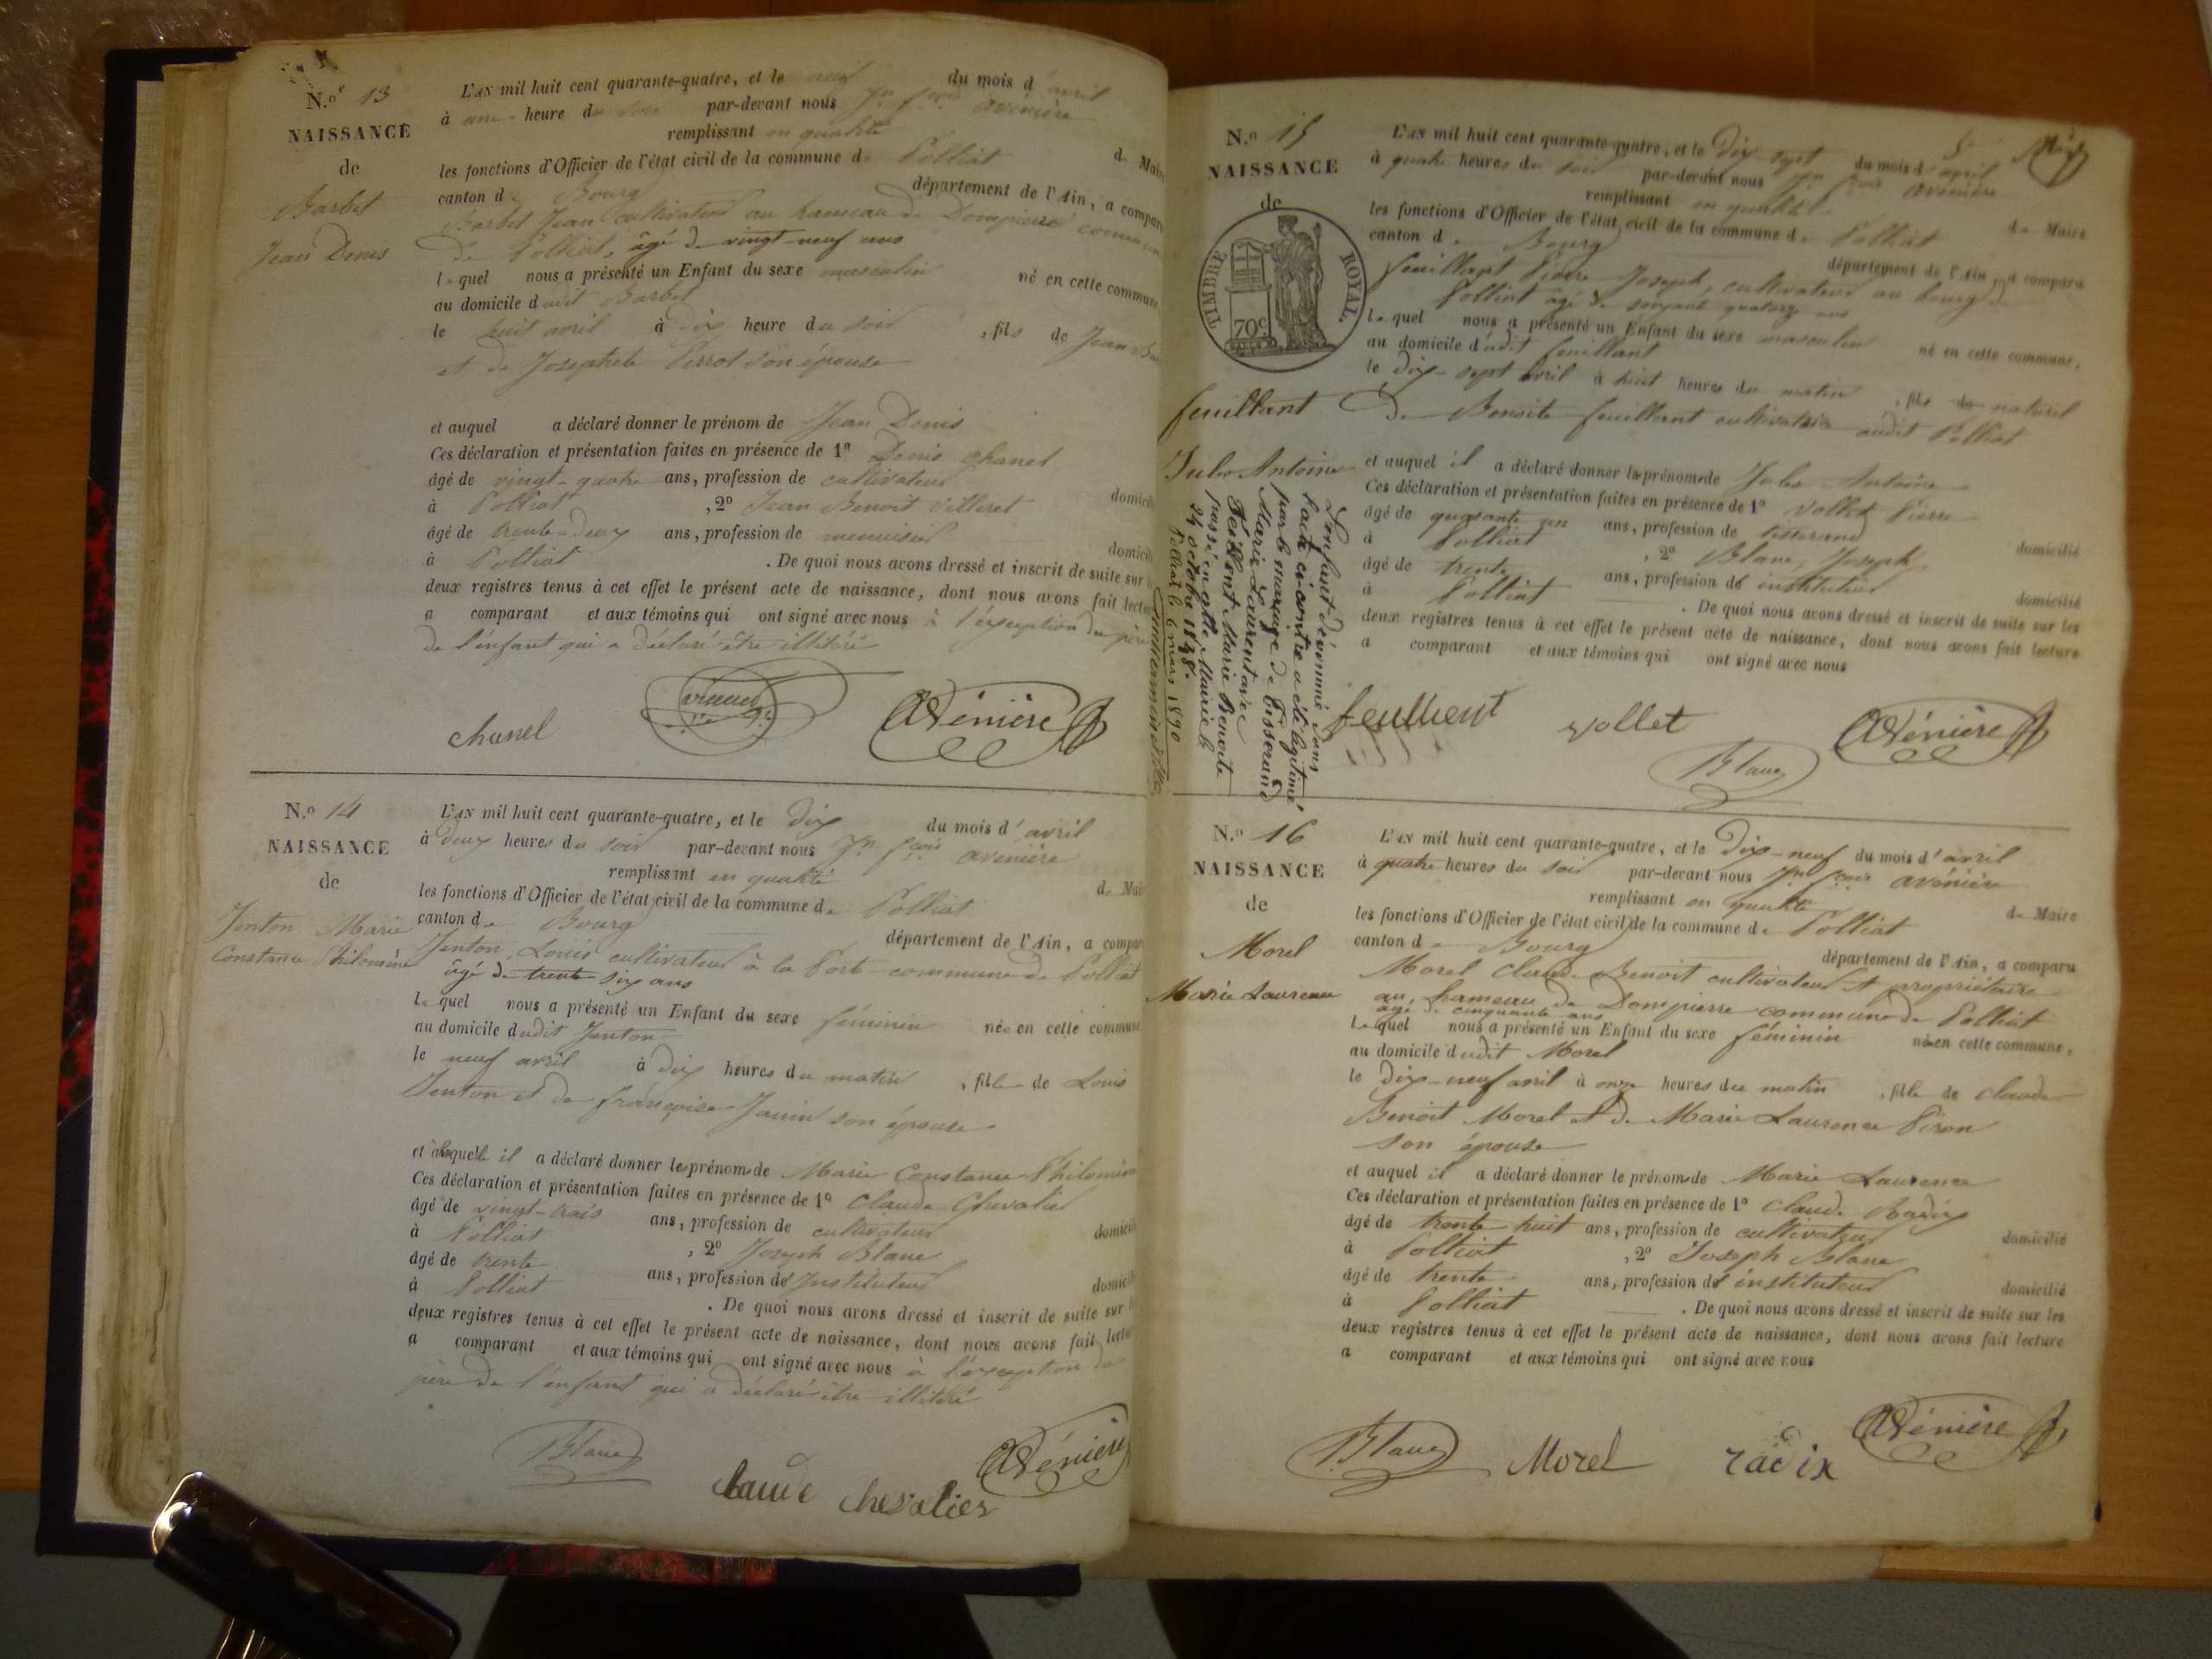 N.º 13
NAISSANCE
de
Barbet
Jean Denis
L'AN mil huit cent quarante-quatre, et le neuf du mois d'avril
à une heure du soir par-devant nous Jn fcois avénière
remplissant en qualité de Maire
les fonctions d'Officier de l'état civil de la commune de Polliat
canton de Bourg département de l'Ain, a comparu
Barbet Jean cultivateur au hameau de Dompierre commune
de Polliat, âgé de vingt-neuf ans
lequel nous a présenté un Enfant du sexe masculin né en cette commune
au domicile dudit Barbet
le huit avril à dix heure du soir, fils de Jean
et de Josephete Perrot son épouse
et auquel a déclaré donner le prénom de Jean Denis
Ces déclaration et présentation faites en présence de 1º Denis Chanel
âgé de vingt-quatre ans, profession de cultivateur
à Polliat, 2º Jean Benoit Villeret
âgé de trente-deux ans, profession de menuisier
à Polliat. De quoi nous avons dressé et inscrit de suite sur
deux registres tenus à cet effet le présent acte de naissance, dont nous avons fait lecture
a comparant et aux témoins qui ont signé avec nous à l'exception du père
de l'enfant qui a déclaré être illitéré
chanel
Avénière
N.º 14
NAISSANCE
de
Jenton Marie
Constance Philomène
L'AN mil huit cent quarante-quatre, et le dix du mois d'avril
à deux heures du soir par-devant nous Jn fcois avénière
remplissant en qualité de Maire
les fonctions d'Officier de l'état civil de la commune de Polliat
canton de Bourg département de l'Ain, a comparu
Jenton, Louis cultivateur à la Poste commune de Polliat
âgé de trente six ans
lequel nous a présenté un Enfant du sexe féminin née en cette commune
au domicile dudit Jenton
le neuf avril à dix heures du matin, fille de Louis
Jenton et de françoise Janin son épouse
et à laquelle il a déclaré donner les prénoms de Marie Constance Philomène
Ces déclaration et présentation faites en présence de 1º Claude Chevalier
âgé de vingt-trois ans, profession de cultivateur domicilié
à Polliat, 2º Joseph Blanc
âgé de trente ans, profession d'Instituteur domicilié
à Polliat. De quoi nous avons dressé et inscrit de suite sur
deux registres tenus à cet effet le présent acte de naissance, dont nous avons fait lecture
a comparant et aux témoins qui ont signé avec nous à l'exception du
père de l'enfant qui a déclaré être illitéré
Blanc
Claude chevalier
Avénière
N.º 15
NAISSANCE
de
TIMBRE ROYAL.
70c
feuillant
Jules Antoine
L'enfant dénommé dans
l'acte ci-contre a été légitimé
par le mariage de Tisserand
Marie Laurent avec
Feuillent Marie Benoite
passé en cette Mairie le
24 octobre 1848.
Polliat le 6 mars 1890
L'AN mil huit cent quarante-quatre, et le dix sept du mois d'avril
à quatre heures du soir par-devant nous Jn fcois avénière
remplissant en qualité de Maire
les fonctions d'Officier de l'état civil de la commune de Polliat
canton de Bourg département de l'Ain, a comparu
feuillant Pierre Joseph, cultivateur au bourg de
Polliat âgé de soixante quatorze ans
lequel nous a présenté un Enfant du sexe masculin né en cette commune,
au domicile dudit feuillant
le dix-sept avril à huit heures du matin, fils de naturel
de Benoite feuillant cultivatrice audit Polliat
et auquel il a déclaré donner les prénoms de Jules Antoine
Ces déclaration et présentation faites en présence de 1º Vollet Pierre
âgé de quarante un ans, profession de tisserand domicilié
à Polliat, 2º Blanc, Joseph
âgé de trente ans, profession d'instituteur domicilié
à Polliat. De quoi nous avons dressé et inscrit de suite sur les
deux registres tenus à cet effet le présent acte de naissance, dont nous avons fait lecture
a comparant et aux témoins qui ont signé avec nous
feullient
vollet
Blanc
Avénière
N.º 16
NAISSANCE
de
Morel
Marie Laurence
L'AN mil huit cent quarante-quatre, et le dix-neuf du mois d'avril
à quatre heures du soir par-devant nous Jn fcois avénière
remplissant en qualité de Maire
les fonctions d'Officier de l'état civil de la commune de Polliat
canton de Bourg département de l'Ain, a comparu
Morel Claude Benoit cultivateur et propriétaire
au hameau de Dompierre commune de Polliat
âgé de cinquante ans
lequel nous a présenté un Enfant du sexe féminin née en cette commune,
au domicile dudit Morel
le dix-neuf avril à onze heures du matin, fille de Claude
Benoit Morel et de Marie Laurence Piron
son épouse
et auquel il a déclaré donner le prénoms de Marie Laurence
Ces déclaration et présentation faites en présence de 1º Claude Radix
âgé de trente huit ans, profession de cultivateur domicilié
à Polliat, 2º Joseph Blanc
âgé de trente ans, profession d'instituteur domicilié
à Polliat. De quoi nous avons dressé et inscrit de suite sur les
deux registres tenus à cet effet le présent acte de naissance, dont nous avons fait lecture
a comparant et aux témoins qui ont signé avec nous
Blanc
Morel
radix
Avénière